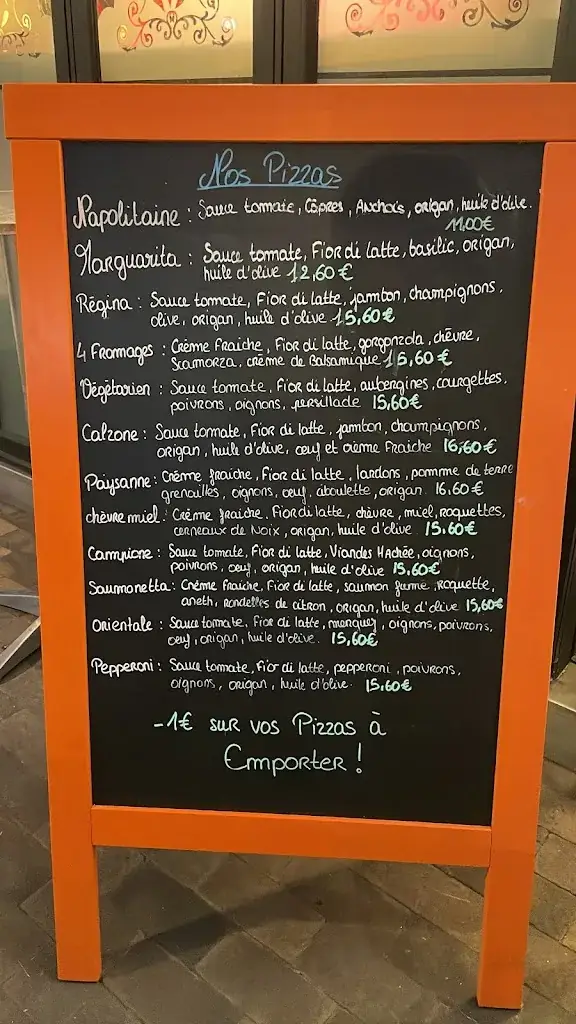 Nos Pizzas
Napolitaine : Sauce tomate, Câpres, Anchois, origan, huile d'olive.
11,00€
Marguarita : Sauce tomate, Fior di latte, basilic, origan,
huile d'olive 12,60€
Régina : Sauce tomate, Fior di latte, jambon, champignons,
olive, origan, huile d'olive 15,60€
4 Fromages : Crème Fraiche, Fior di latte, gorgonzola, chèvre,
Scamorza, crème de Balsamique 15,60€
Végétarien : Sauce tomate, Fior di latte, aubergines, courgettes,
poivrons, oignons, persillade 15,60€
Calzone : Sauce tomate, Fior di latte, jambon, champignons,
origan, huile d'olive, oeuf et crème Fraiche 16,60€
Paysanne : Crème fraiche, Fior di latte, lardons, pomme de terre
grenailles, oignons, oeuf, ciboulette, origan. 16,60€
chèvre miel : Crème fraiche, Fior di latte, chèvre, miel, roquettes,
cerneaux de Noix, origan, huile d'olive 15,60€
Campione : Sauce tomate, Fior di latte, Viandes Hachée, oignons,
poivrons, oeuf, origan, huile d'olive 15,60€
Saumonetta : Crème Fraiche, Fior di latte, saumon fumé, Roquette,
aneth, rondelles de citron, origan, huile d'olive 15,60€
Orientale : Sauce tomate, Fior di latte, merguez, oignons, poivrons,
oeuf, origan, huile d'olive. 15,60€
Pepperoni : Sauce tomate, Fior di latte, pepperoni, poivrons,
oignons, origan, huile d'olive. 15,60€
-1€ sur vos Pizzas à
Emporter !